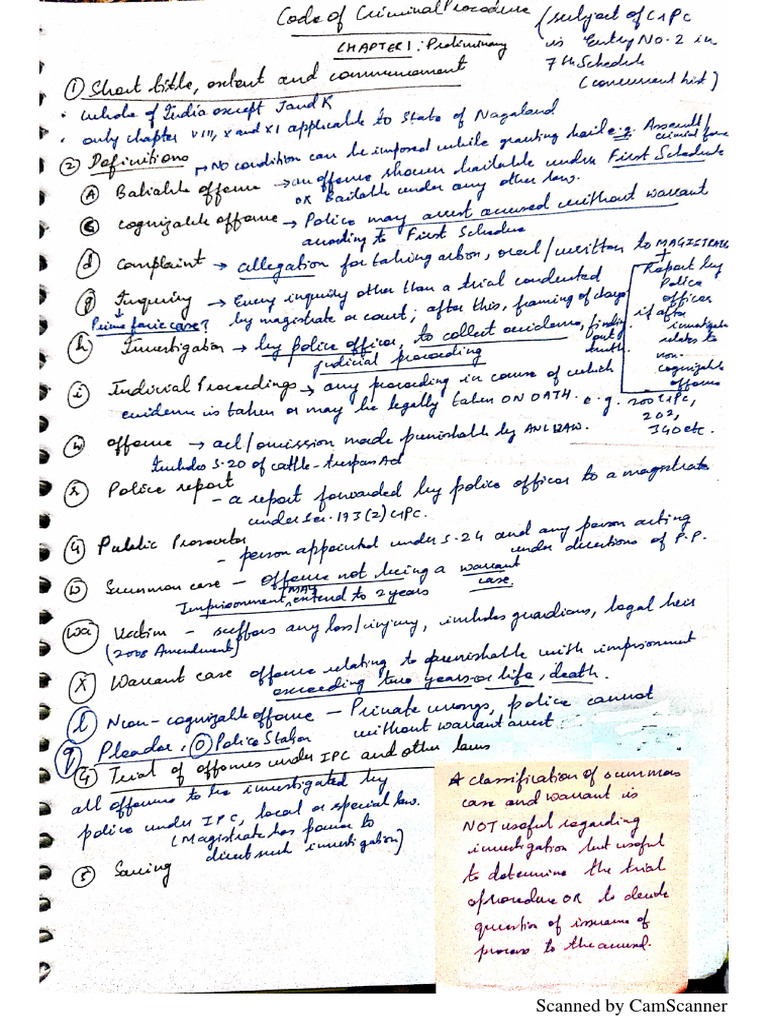 Code of Criminal Procedure
(subject of CrPC
is Entry No. 2 in
7th Schedule
(concurrent list)
CHAPTER 1: Preliminary
① Short title, extent and commencement
• whole of India except J and K
• only chapter VIII, X and XI applicable to State of Nagaland
② Definitions → No condition can be imposed while granting bail e.g. Assault/
criminal force
Ⓐ Bailable offence → an offence shown bailable under First Schedule
OR Bailable under any other law.
Ⓒ cognizable offence → Police may arrest accused without warrant
according to First Schedule
ⓓ Complaint → allegation for taking action, oral/written to MAGISTRATE
+
Report by
Police
officer
if after
investigate
relates to
non-
cognizable
offence
ⓖ Inquiry → Every inquiry other than a trial conducted
Prime facie case? by magistrate or court; after this, framing of charge
ⓗ Investigation → by police officer, to collect evidence, finding
out
truth.
judicial proceeding
ⓘ Judicial Proceedings → any proceeding in course of which
evidence is taken or may be legally taken ON OATH. e.g. 200 CrPC,
202,
340 etc.
ⓝ offence → act/omission made punishable by ANY LAW.
Includes S.20 of cattle-trespass Act
ⓡ Police report
- a report forwarded by police officer to a magistrate
under Sec. 173(2) CrPC.
ⓤ Public Prosecutor
- person appointed under S.24 and any person acting
under directions of P.P.
ⓦ Summon case - offence not being a warrant
case.
Imprisonment MAY extend to 2 years
(wa) Victim - suffers any loss/injury, includes guardians, legal heir
(2008 Amendment)
Ⓧ Warrant case offence relating to punishable with imprisonment
exceeding two years or life, death.
ⓛ Non-cognizable offence - Private wrongs, police cannot
without warrant arrest
ⓠ Pleader, ⓞ Police Station
④ Trial of offences under IPC and other laws
all offence to be investigated by
police under IPC, local or special law.
(Magistrate has power to
direct such investigation)
⑤ Saving
A classification of summons
case and warrant is
NOT useful regarding
investigation but useful
to determine the trial
procedure OR to decide
question of issuance of
process to the accused.
Scanned by CamScanner